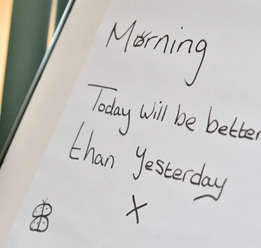 Morning
Today will be better
than yesterday
X